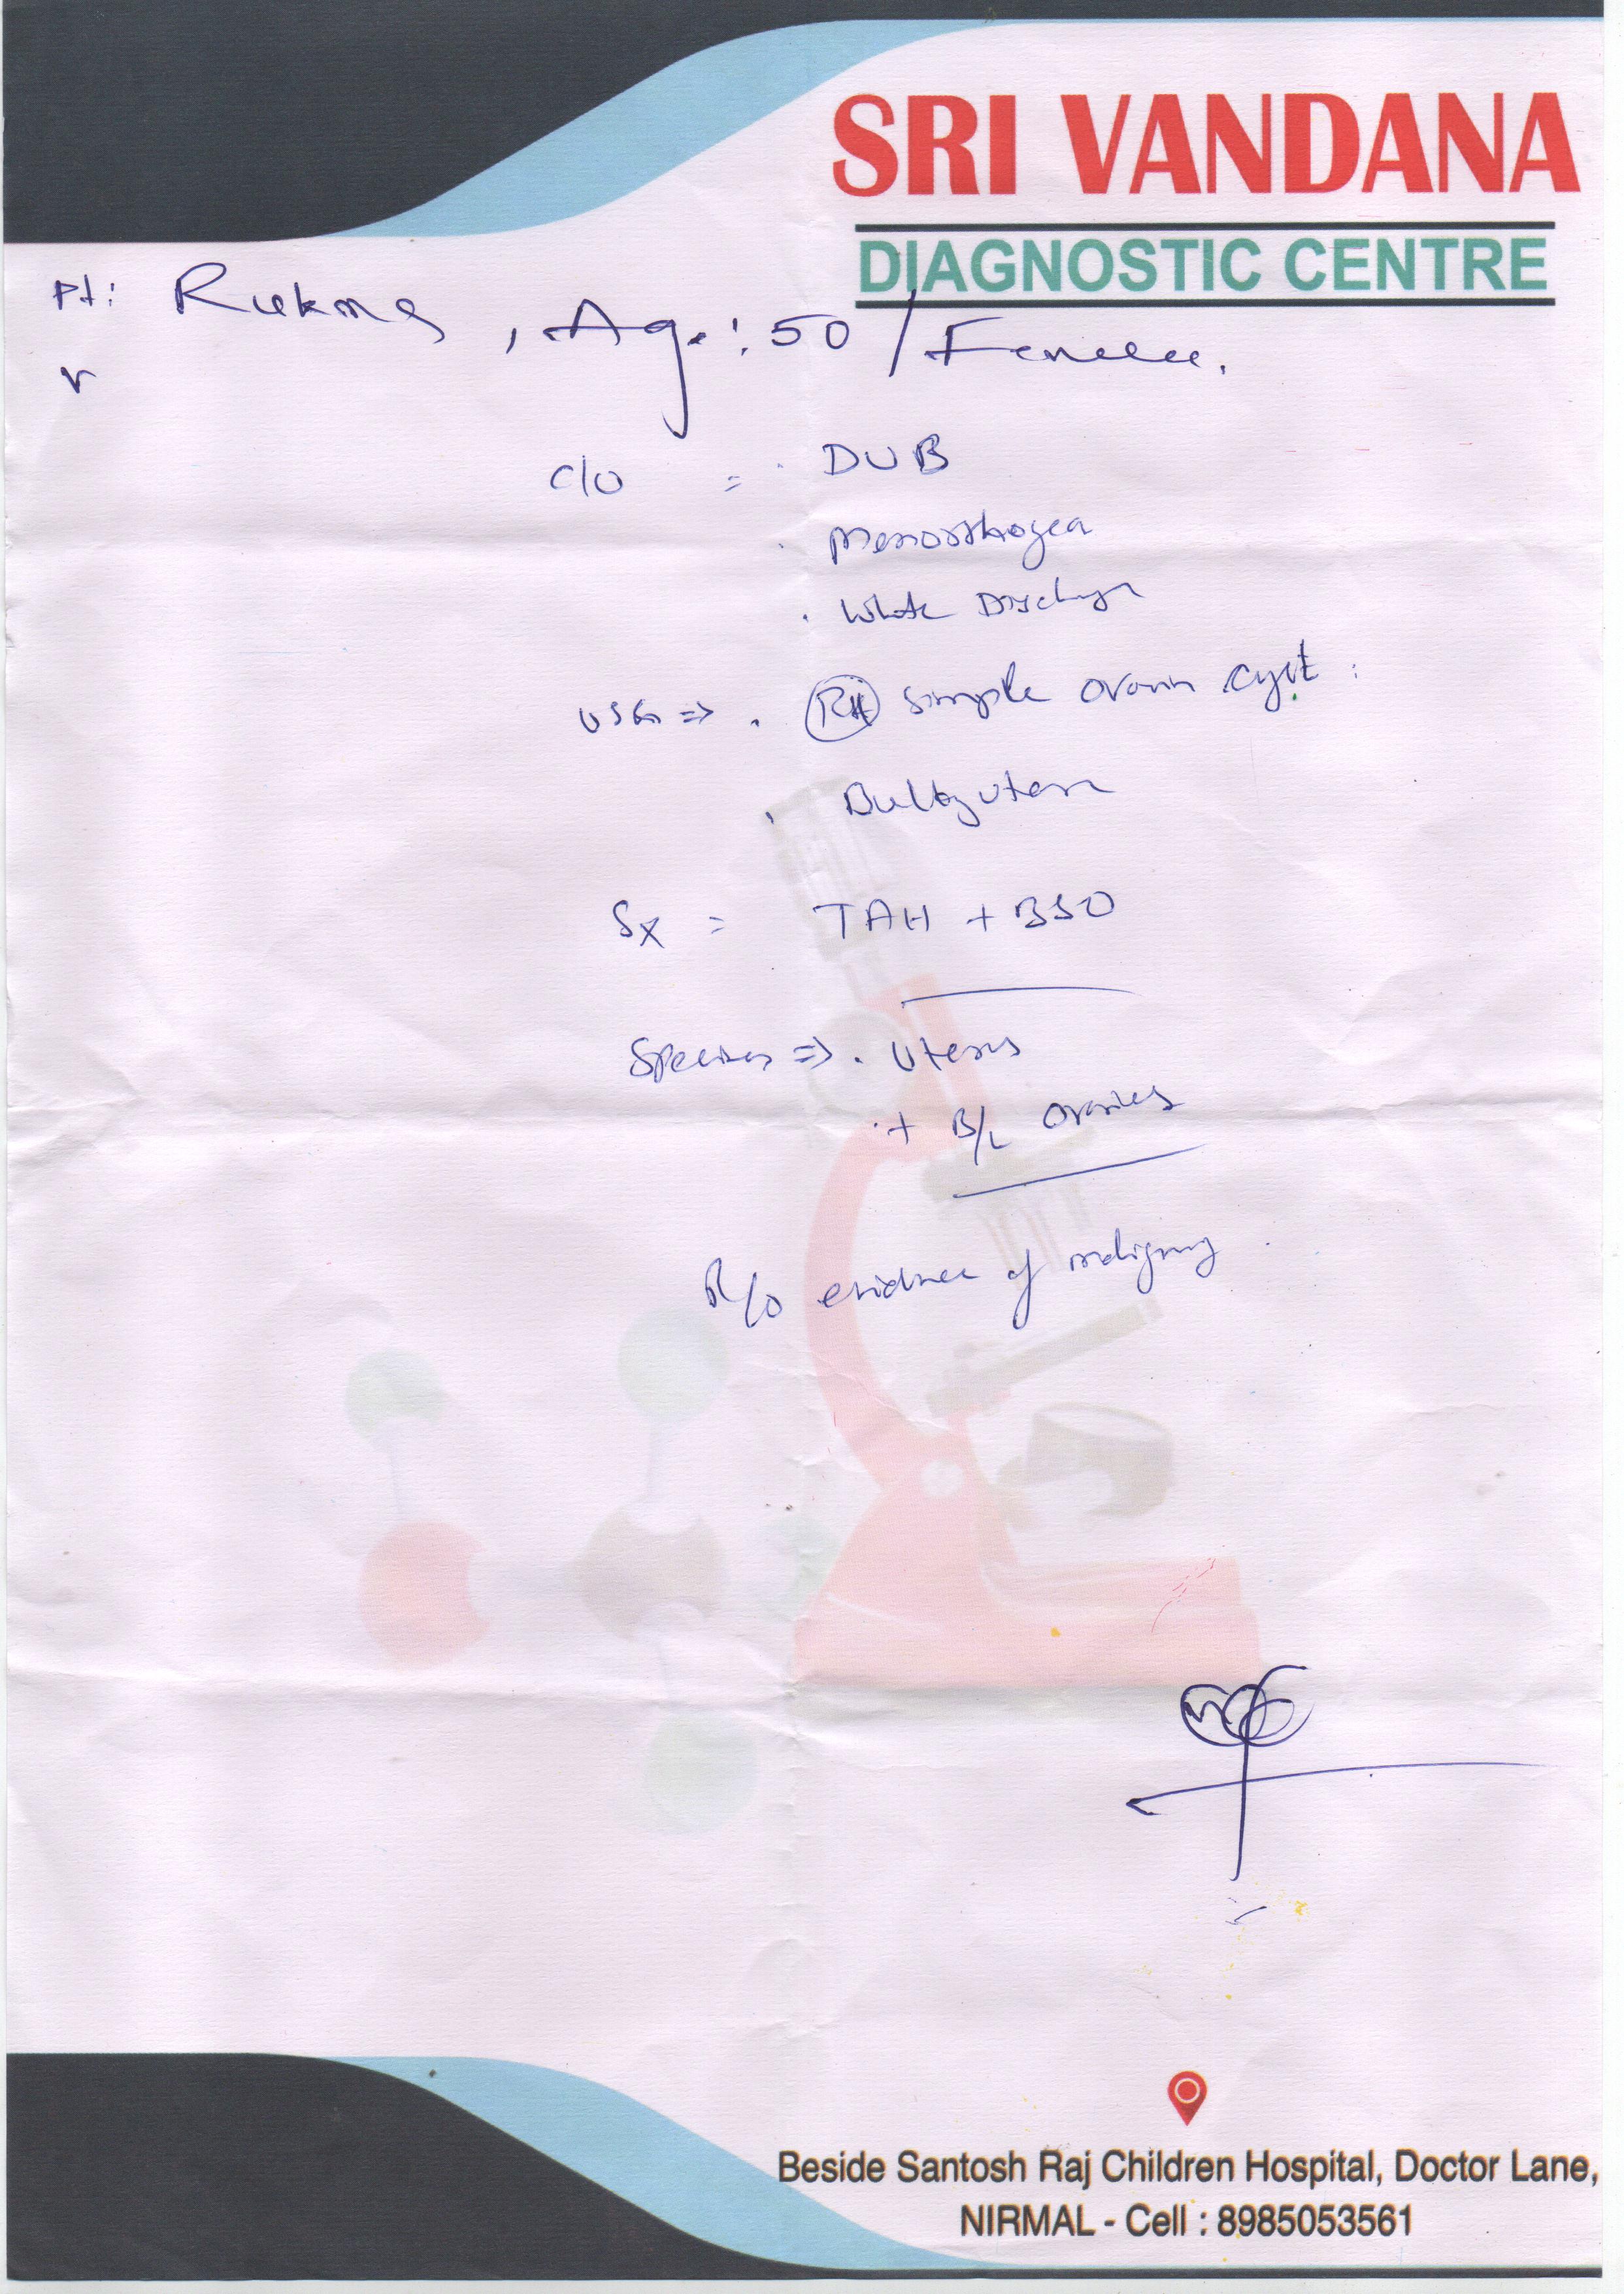 SRI VANDANA
DIAGNOSTIC CENTRE
Pt: Rukma, Age: 50 / Female.
C/O = . DUB
. Menorrhagea
. White Discharge
USG => . Rt simple ovarian cyst :
. Bulky uterus
Sx = TAH + BSO
Specimen => . Uterus
. + B/L ovaries
R/o evidence of malignancy .
Beside Santosh Raj Children Hospital, Doctor Lane,
NIRMAL - Cell : 8985053561